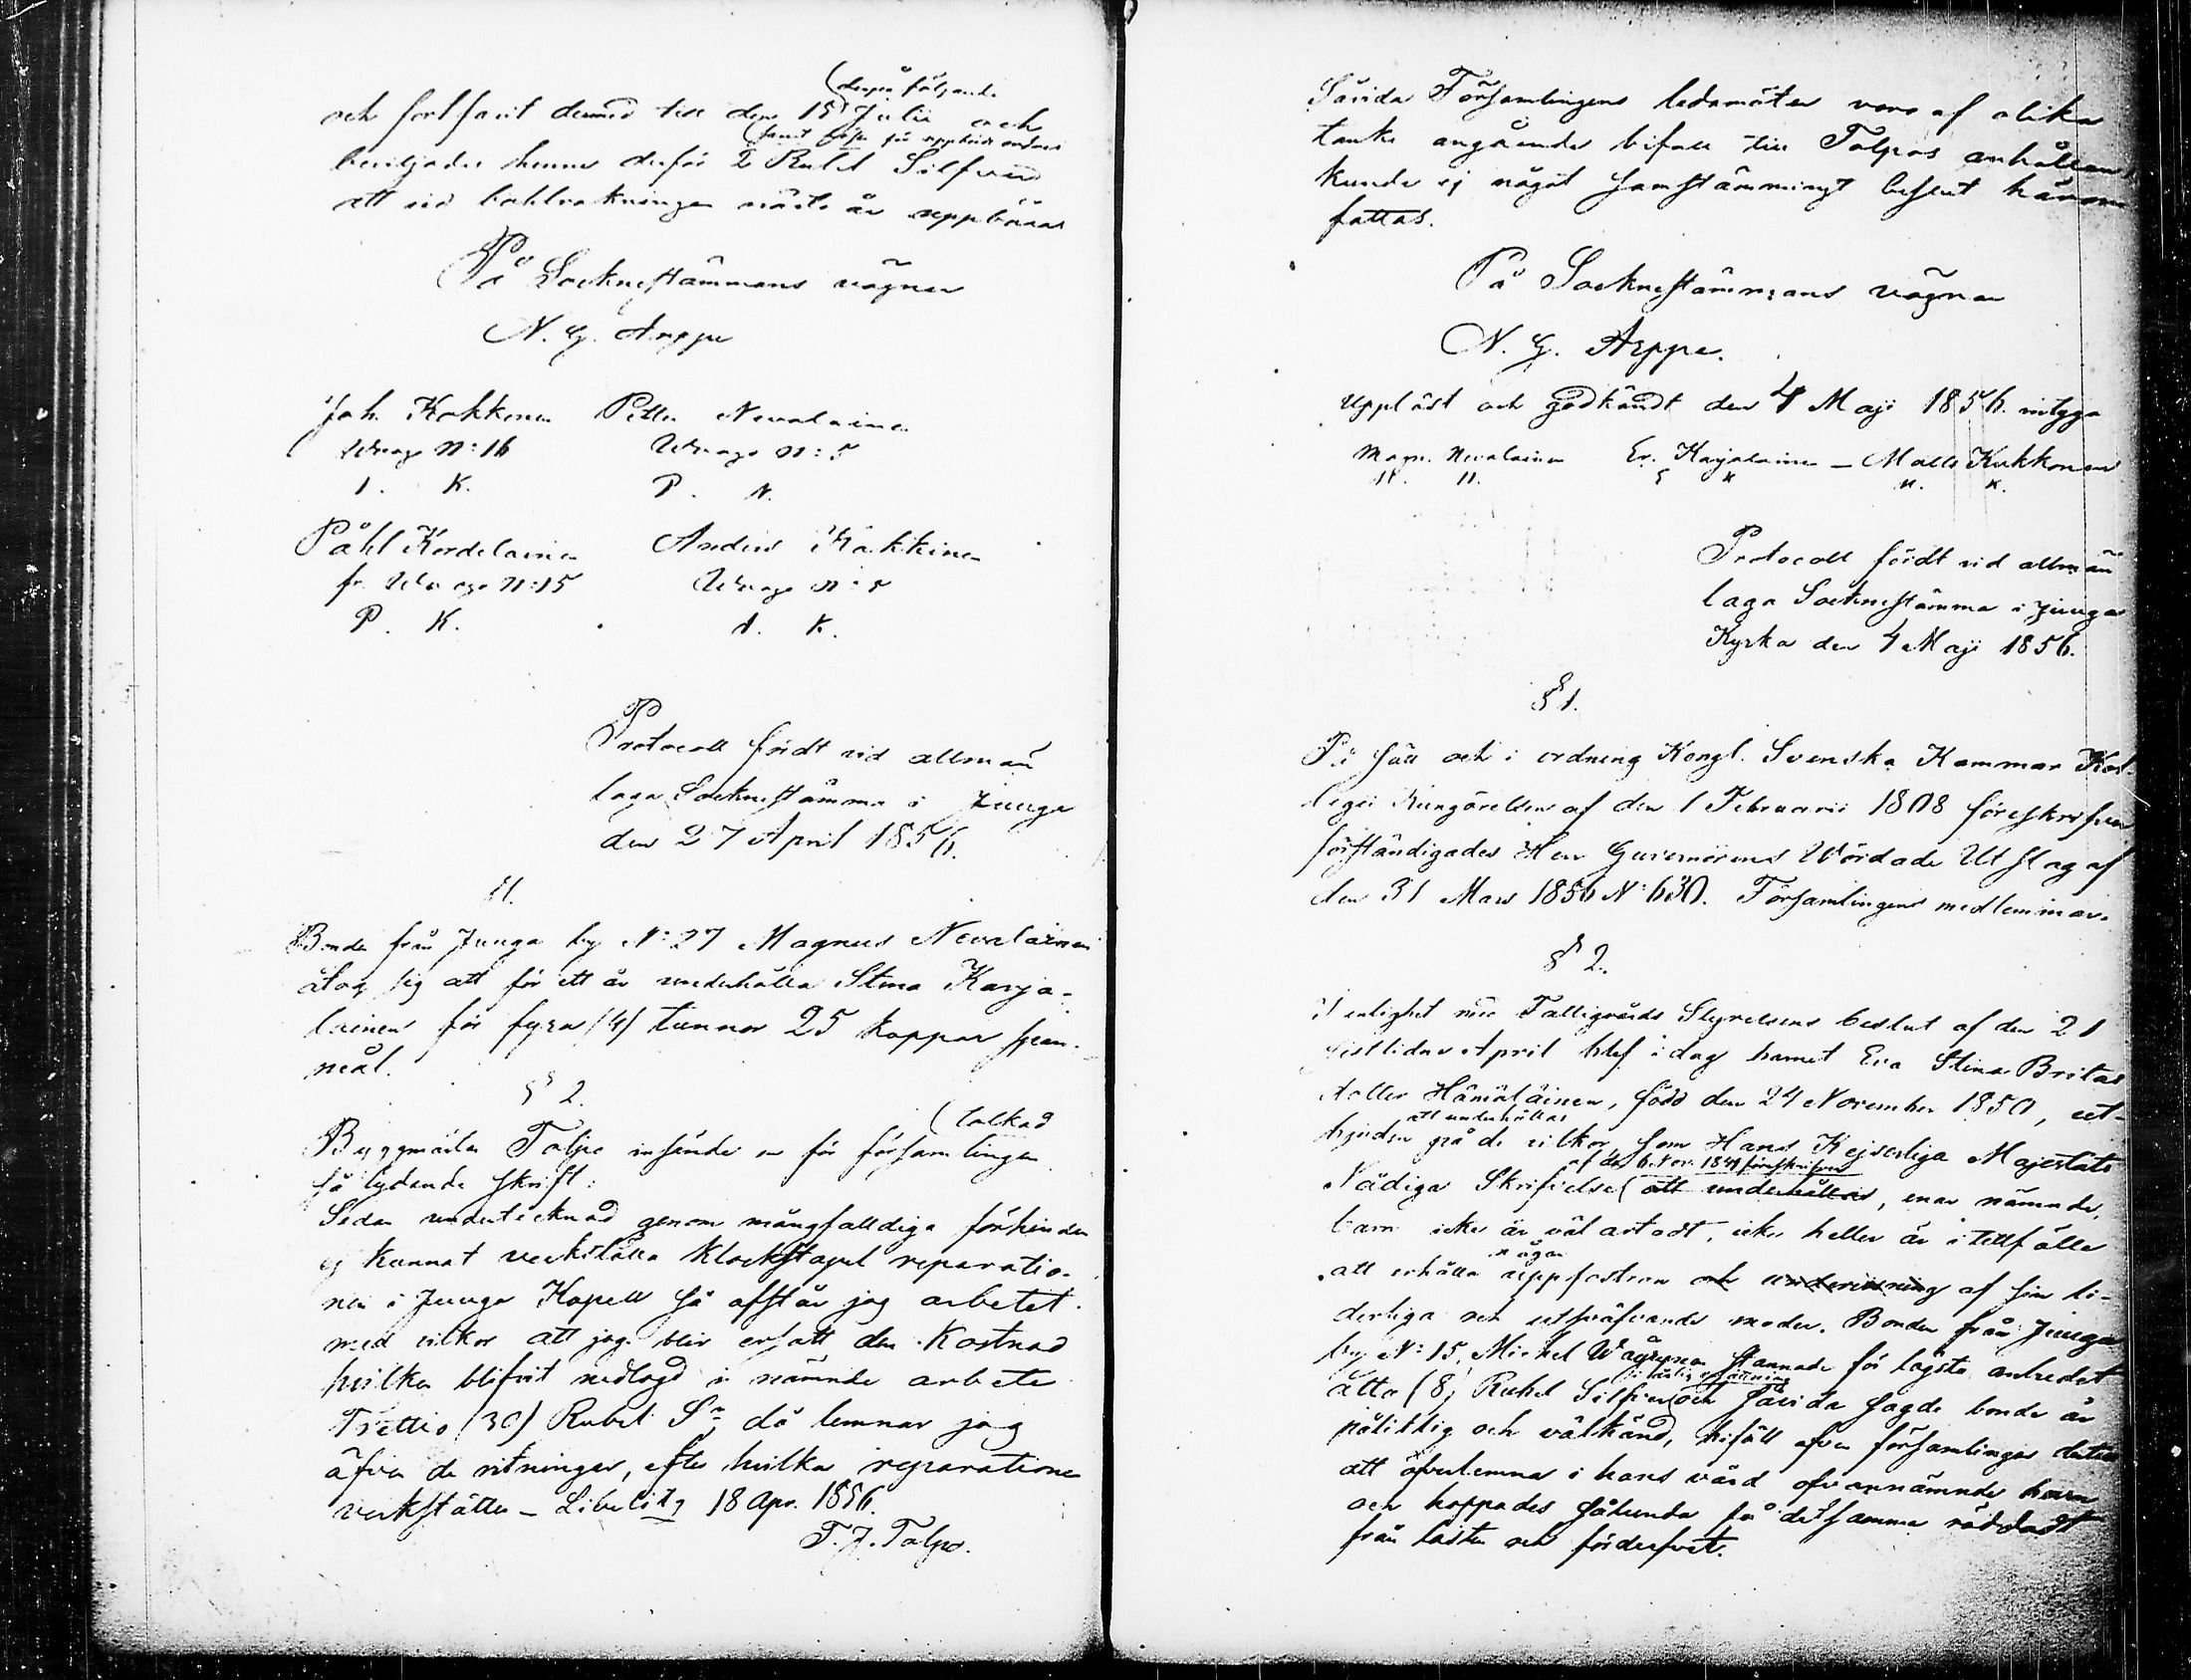 (derpå följande
och fortfarit dermed till den 15 Julii och
beviljades henne derför 2 Rubel Silfver
att vid boklräkningen nästa år uppbäras
På Socknestämmans vägnar
N. G. Arppe
Joh. Kokkonen Petter Nevalainen
Uhrago N:16 Uhrago N:5
I. K. P. N.
Påhl Kordelainen Anders Kakkinen
fr. Uhrago N:15 Uhrago N:5
P. K. A. K.
Protocoll fördt vid allmän
laga Socknestämma i Juuga
den 27 April 1856.
§1.
Bonden från Juuga by N:27 Magnus Nevalainen
åtog sig att för ett år underhålla Stina Karja-
lainen för fyra (4) tunnor 25 kappar span-
mål.
§ 2.
(tolkad
Byggmästar Tolpo insände en för församlingen
så lydande skrift:
Sedan undertecknad genom mångfalldiga förhinder
ej kunnat verkställa Klockstapel reparatio-
nen i Juuga Kapell så afstår jag arbetet
med vilkor att jag blir ersatt den Kostnad
hvilken blifvit nedlagd i nämnde arbete
Trettio (30) Rubel Sr då lemnar jag
äfven de ritningar, efter hvilka reparationen
verkställes – Libelitz 18 Apr. 1856.
T. J. Tolpo.
Såvida Församlingens ledamöter voro af olika
tanke angående bifall till Tolpos anhållan
kunde ej något samstämmigt beslut härom
fattas.
På Socknestämmans vägnar
N. G. Arppe.
Uppläst och godkändt den 4 Maji 1856. intyga
Magn. Nevalainen Er. Karjalainen – Matts Kukkonen
M. N. E K M. K.
Protocoll fördt vid allmän
laga Socknestämma i Juuga
Kyrka den 4 Maji 1856.
§ 1.
På sätt och i ordning Kongl. Svenska Kammar Kol-
legii Kungörelsen af den 1 Februarii 1808 föreskrifver
förständigades Herr Guvernörens Wördade Utslag af
den 31 Mars 1856 N:630. Församlingens medlemmar.
§ 2.
I enlighet med Fattigvårds Styrelsens beslut af den 21
sistlidne April blef i dag barnet Eva Stina Britas
dotter Hämäläinen, född den 24 November 1850, ut-
att underhållas
bjuden på de vilkor, som Hans Kejserliga Majestäts
af den 6 Nov. 1849 föreskrifver
Nådiga Skrifvelse att underhållas, enär nämnde
barn icke är väl artadt, icke heller är i tillfälle
någon
att erhålla uppfostran och undervisning af sin li-
derliga och utsväfvande moder. Bonden från Juuga
by N:15, Michel Wäyrynen stannade för lägsta anbudet
åtta (8) Rubel Silfver och såvida sagde bonde är
pålitlig och välkänd, biföll äfven församlingen dertill
att öfverlemna i hans vård ofvannämnde barn
och hoppades sålunda få detsamma räddadt
från lasten och förderfvet.